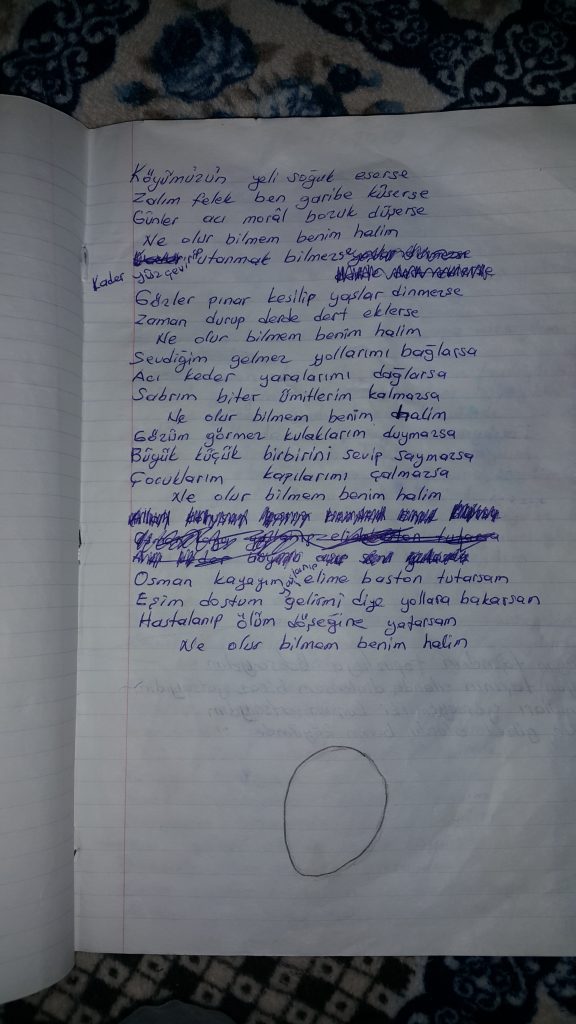 Köyümüzün yeli soğuk eserse
Zalım felek ben garibe küserse
Günler acı morâl bozuk düşerse
Ne olur bilmem benim halim
Kader yüz çevirip utanmak bilmezse
Gözler pınar kesilip yaşlar dinmezse
Zaman durup derde dert eklerse
Ne olur bilmem benim halim
Sevdiğim gelmez yollarımı bağlarsa
Acı keder yaralarımı dağlarsa
Sabrım biter ümitlerim kalmazsa
Ne olur bilmem benim halim
Gözüm görmez kulaklarım duymazsa
Büyük küçük birbirini sevip saymazsa
Çocuklarım kapılarımı çalmazsa
Ne olur bilmem benim halim
Osman kayayım yaşlanıp elime baston tutarsam
Eşim dostum gelirmi diye yollara bakarsam
Hastalanıp ölüm döşeğine yatarsam
Ne olur bilmem benim halim